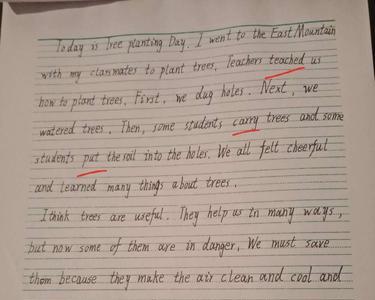 Today is Tree planting Day. I went to the East Mountain
with my classmates to plant trees. Teachers teached us
how to plant trees. First, we dug holes. Next, we
watered trees. Then, some students carry trees and some
students put the soil into the holes. We all felt cheerful
and learned many things about trees.
I think trees are useful. They help us in many ways,
but now some of them are in danger. We must save
them because they make the air clean and cool and